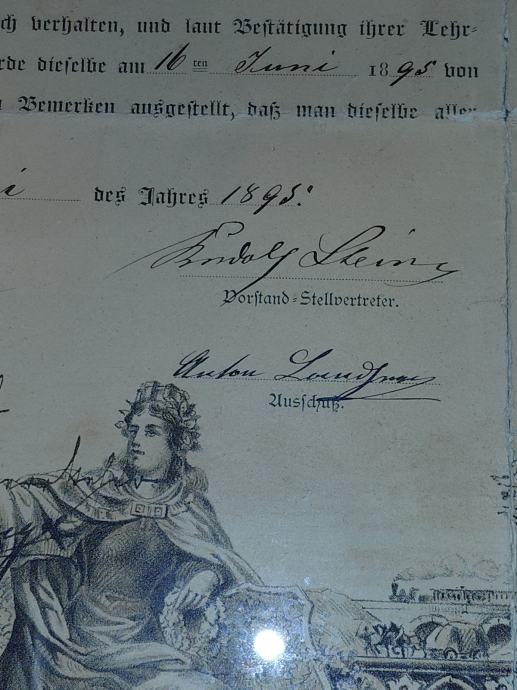 ch verhalten, und laut Bestätigung ihrer Lehr-
rde dieselbe am 16 ten Juni 1895 von
n Bemerken ausgestellt, daß man dieselbe aller
i des Jahres 1895.
Rudolf
Vorstand-Stellvertreter.
Anton
Ausschuß.